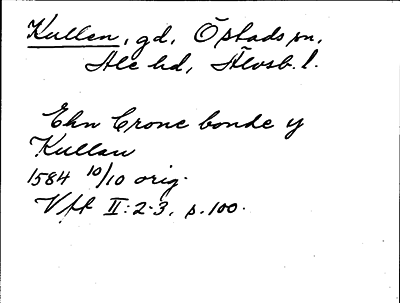 Kullen, gd, Östads sn,
Ale hd, Älvsb. l.
Ehn Crone bonde y
Kullan
1584 10/10 orig.
Vfk II:2-3, p.100.